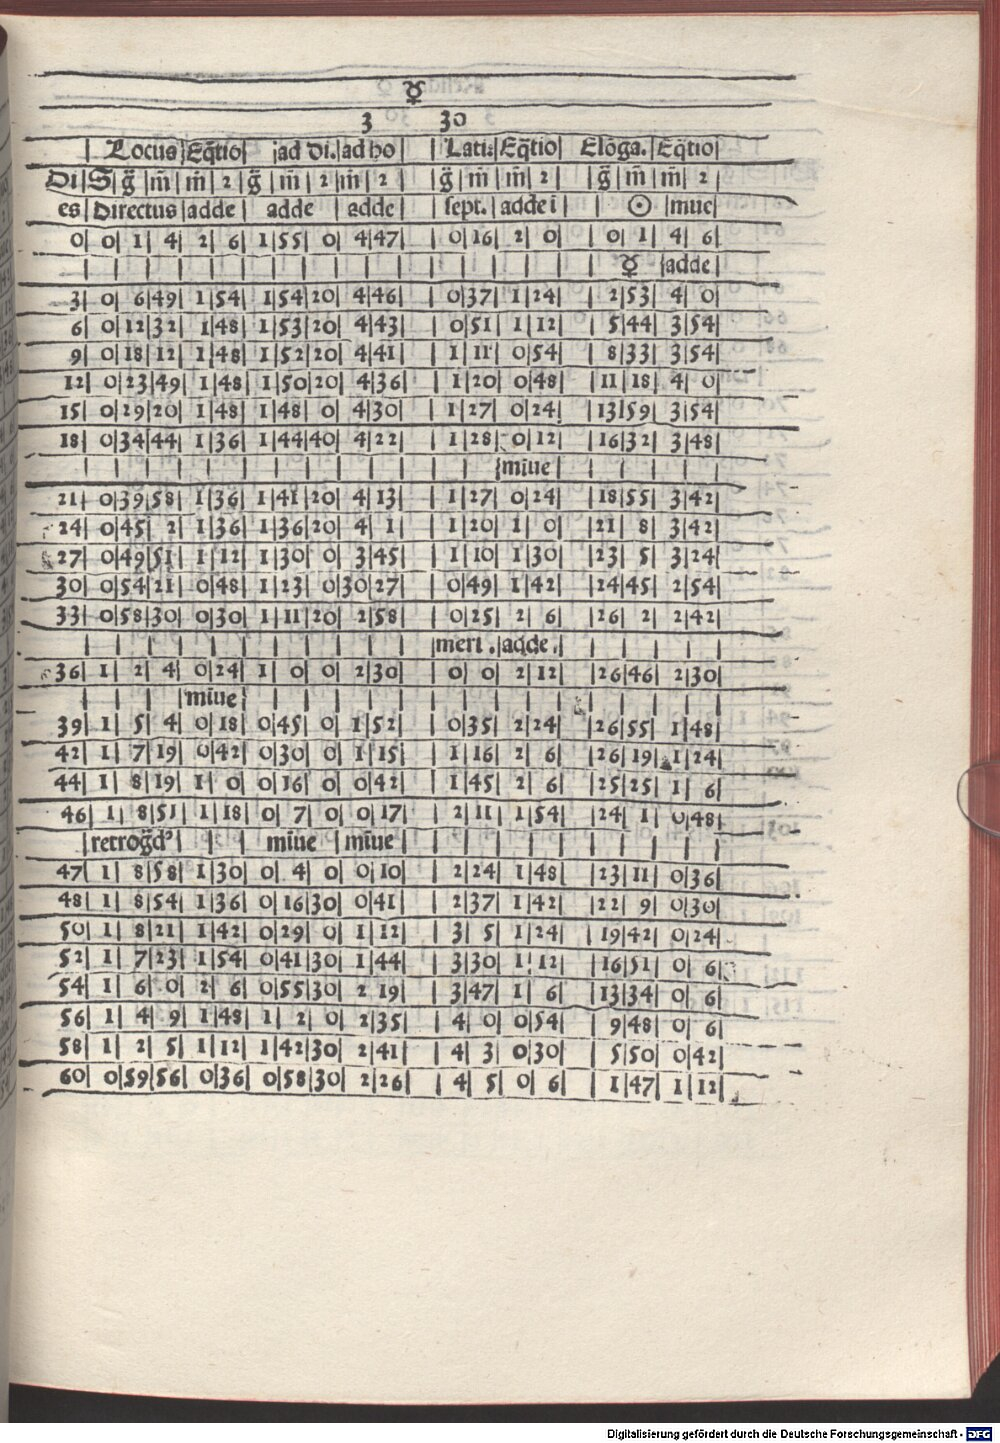 ☿
3 30
| Locus | Eq̃tio | ad Di. | ad ho | Lati: | Eq̃tio | Elõga. | Eq̃tio |
Di | S | g̃ | m̃ | m̃ | 2 | g̃ | m̃ | 2 | m̃ | 2 | g̃ | m̃ | m̃ | 2 | g̃ | m̃ | m̃ | 2
es | Directus | adde | adde | adde | sept. | adde i | ☉ | muc |
0 | 0 | 1 | 4 | 2 | 6 | 1 | 55 | 0 | 4 | 47 | 0 | 16 | 2 | 0 | 0 | 1 | 4 | 6 |
☿ | adde |
3 | 0 | 6 | 49 | 1 | 54 | 1 | 54 | 20 | 4 | 46 | 0 | 37 | 1 | 24 | 2 | 53 | 4 | 0 |
6 | 0 | 12 | 32 | 1 | 48 | 1 | 53 | 20 | 4 | 43 | 0 | 51 | 1 | 12 | 5 | 44 | 3 | 54 |
9 | 0 | 18 | 12 | 1 | 48 | 1 | 52 | 20 | 4 | 41 | 1 | 11 | 0 | 54 | 8 | 33 | 3 | 54 |
12 | 0 | 23 | 49 | 1 | 48 | 1 | 50 | 20 | 4 | 36 | 1 | 20 | 0 | 48 | 11 | 18 | 4 | 0 |
15 | 0 | 29 | 20 | 1 | 48 | 1 | 48 | 0 | 4 | 30 | 1 | 27 | 0 | 24 | 13 | 59 | 3 | 54 |
18 | 0 | 34 | 44 | 1 | 36 | 1 | 44 | 40 | 4 | 22 | 1 | 28 | 0 | 12 | 16 | 32 | 3 | 48 |
| mĩue |
21 | 0 | 39 | 58 | 1 | 36 | 1 | 41 | 20 | 4 | 13 | 1 | 27 | 0 | 24 | 18 | 55 | 3 | 42 |
24 | 0 | 45 | 2 | 1 | 36 | 1 | 36 | 20 | 4 | 1 | 1 | 20 | 1 | 0 | 21 | 8 | 3 | 42 |
27 | 0 | 49 | 51 | 1 | 12 | 1 | 30 | 0 | 3 | 45 | 1 | 10 | 1 | 30 | 23 | 5 | 3 | 24 |
30 | 0 | 54 | 21 | 0 | 48 | 1 | 23 | 0 | 30 | 27 | 0 | 49 | 1 | 42 | 24 | 45 | 2 | 54 |
33 | 0 | 58 | 30 | 0 | 30 | 1 | 11 | 20 | 2 | 58 | 0 | 25 | 2 | 6 | 26 | 2 | 2 | 42 |
| meri . | adde . |
36 | 1 | 2 | 4 | 0 | 24 | 1 | 0 | 0 | 2 | 30 | 0 | 0 | 2 | 12 | 26 | 46 | 2 | 30 |
| mĩue |
39 | 1 | 5 | 4 | 0 | 18 | 0 | 45 | 0 | 1 | 52 | 0 | 35 | 2 | 24 | 26 | 55 | 1 | 48 |
42 | 1 | 7 | 19 | 0 | 42 | 0 | 30 | 0 | 1 | 15 | 1 | 16 | 2 | 6 | 26 | 19 | 1 | 24 |
44 | 1 | 8 | 19 | 1 | 0 | 0 | 16 | 0 | 0 | 42 | 1 | 45 | 2 | 6 | 25 | 25 | 1 | 6 |
46 | 1 | 8 | 51 | 1 | 18 | 0 | 7 | 0 | 0 | 17 | 2 | 11 | 1 | 54 | 24 | 1 | 0 | 48 |
| retrog̃dꝰ | mĩue | mĩue |
47 | 1 | 8 | 58 | 1 | 30 | 0 | 4 | 0 | 0 | 10 | 2 | 24 | 1 | 48 | 23 | 11 | 0 | 36 |
48 | 1 | 8 | 54 | 1 | 36 | 0 | 16 | 30 | 0 | 41 | 2 | 37 | 1 | 42 | 22 | 9 | 0 | 30 |
50 | 1 | 8 | 21 | 1 | 42 | 0 | 29 | 0 | 1 | 12 | 3 | 5 | 1 | 24 | 19 | 42 | 0 | 24 |
52 | 1 | 7 | 23 | 1 | 54 | 0 | 41 | 30 | 1 | 44 | 3 | 30 | 1 | 12 | 16 | 51 | 0 | 6 |
54 | 1 | 6 | 0 | 2 | 6 | 0 | 55 | 30 | 2 | 19 | 3 | 47 | 1 | 6 | 13 | 34 | 0 | 6 |
56 | 1 | 4 | 9 | 1 | 48 | 1 | 2 | 0 | 2 | 35 | 4 | 0 | 0 | 54 | 9 | 48 | 0 | 6 |
58 | 1 | 2 | 5 | 1 | 12 | 1 | 42 | 30 | 2 | 41 | 4 | 3 | 0 | 30 | 5 | 50 | 0 | 42 |
60 | 0 | 59 | 56 | 0 | 36 | 0 | 58 | 30 | 2 | 26 | 4 | 5 | 0 | 6 | 1 | 47 | 1 | 12 |
Digitalisierung gefördert durch die Deutsche Forschungsgemeinschaft - DFG